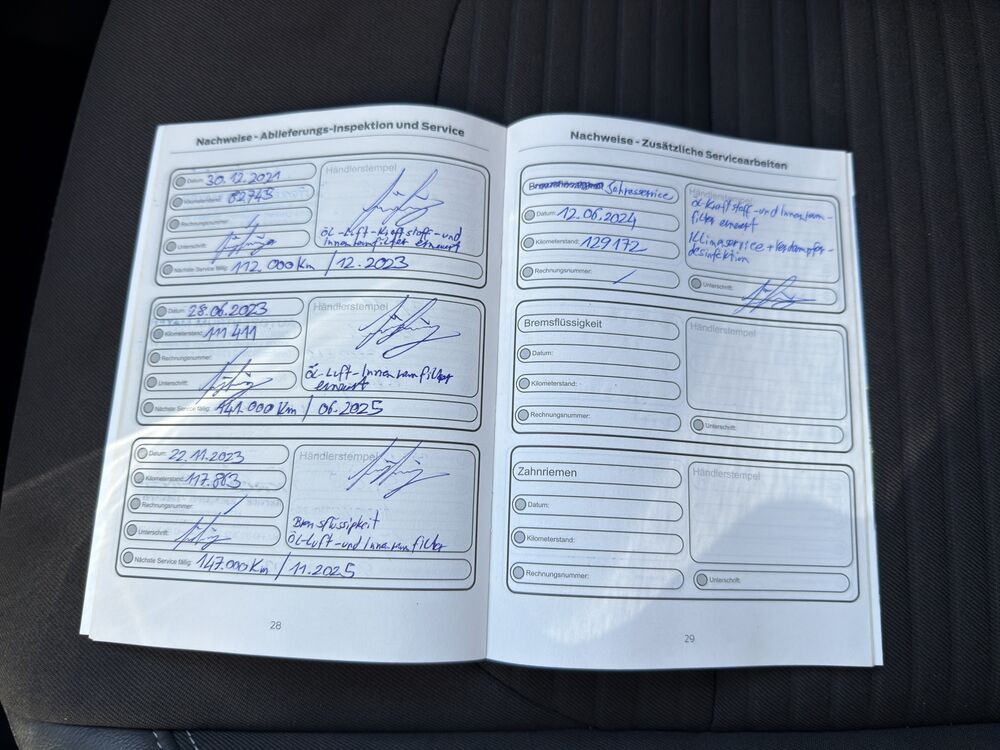 Nachweise - Ablieferungs-Inspektion und Service
Datum: 30.12.2021
Kilometerstand: 82743
Rechnungsnummer:
Unterschrift:
Händlerstempel
ÖL-Luft-Kraftstoff-und
Innenraumfilter erneuert
Nächste Service fällig: 112.000 Km / 12.2023
Datum: 28.06.2023
Kilometerstand: 111411
Rechnungsnummer:
Unterschrift:
Händlerstempel
ÖL-Luft-Innenraumfilter
erneuert
Nächste Service fällig: 141.000 Km / 06.2025
Datum: 22.11.2023
Kilometerstand: 117.863
Rechnungsnummer:
Unterschrift:
Händlerstempel
Bremsflüssigkeit
ÖL-Luft-und Innenraumfilter
Nächste Service fällig: 147.000 Km / 11.2025
28
Nachweise - Zusätzliche Servicearbeiten
Jahresservice
Datum: 12.06.2024
Kilometerstand: 129172
Rechnungsnummer: /
Händlerstempel
ÖL-Kraftstoff-und Innenraum-
filter erneuert
Klimaservice + Verdampfer-
desinfektion
Unterschrift:
Bremsflüssigkeit
Datum:
Kilometerstand:
Rechnungsnummer:
Händlerstempel
Unterschrift:
Zahnriemen
Datum:
Kilometerstand:
Rechnungsnummer:
Händlerstempel
Unterschrift:
29